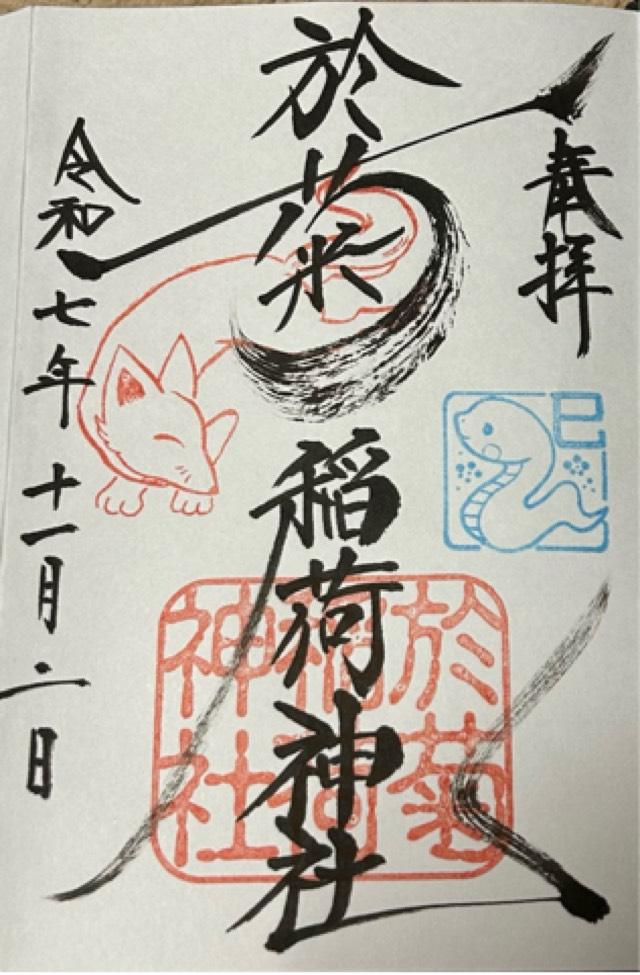 奉拝
巳
於菊稲荷神社
於菊
稲荷
神社
令和七年十一月二日